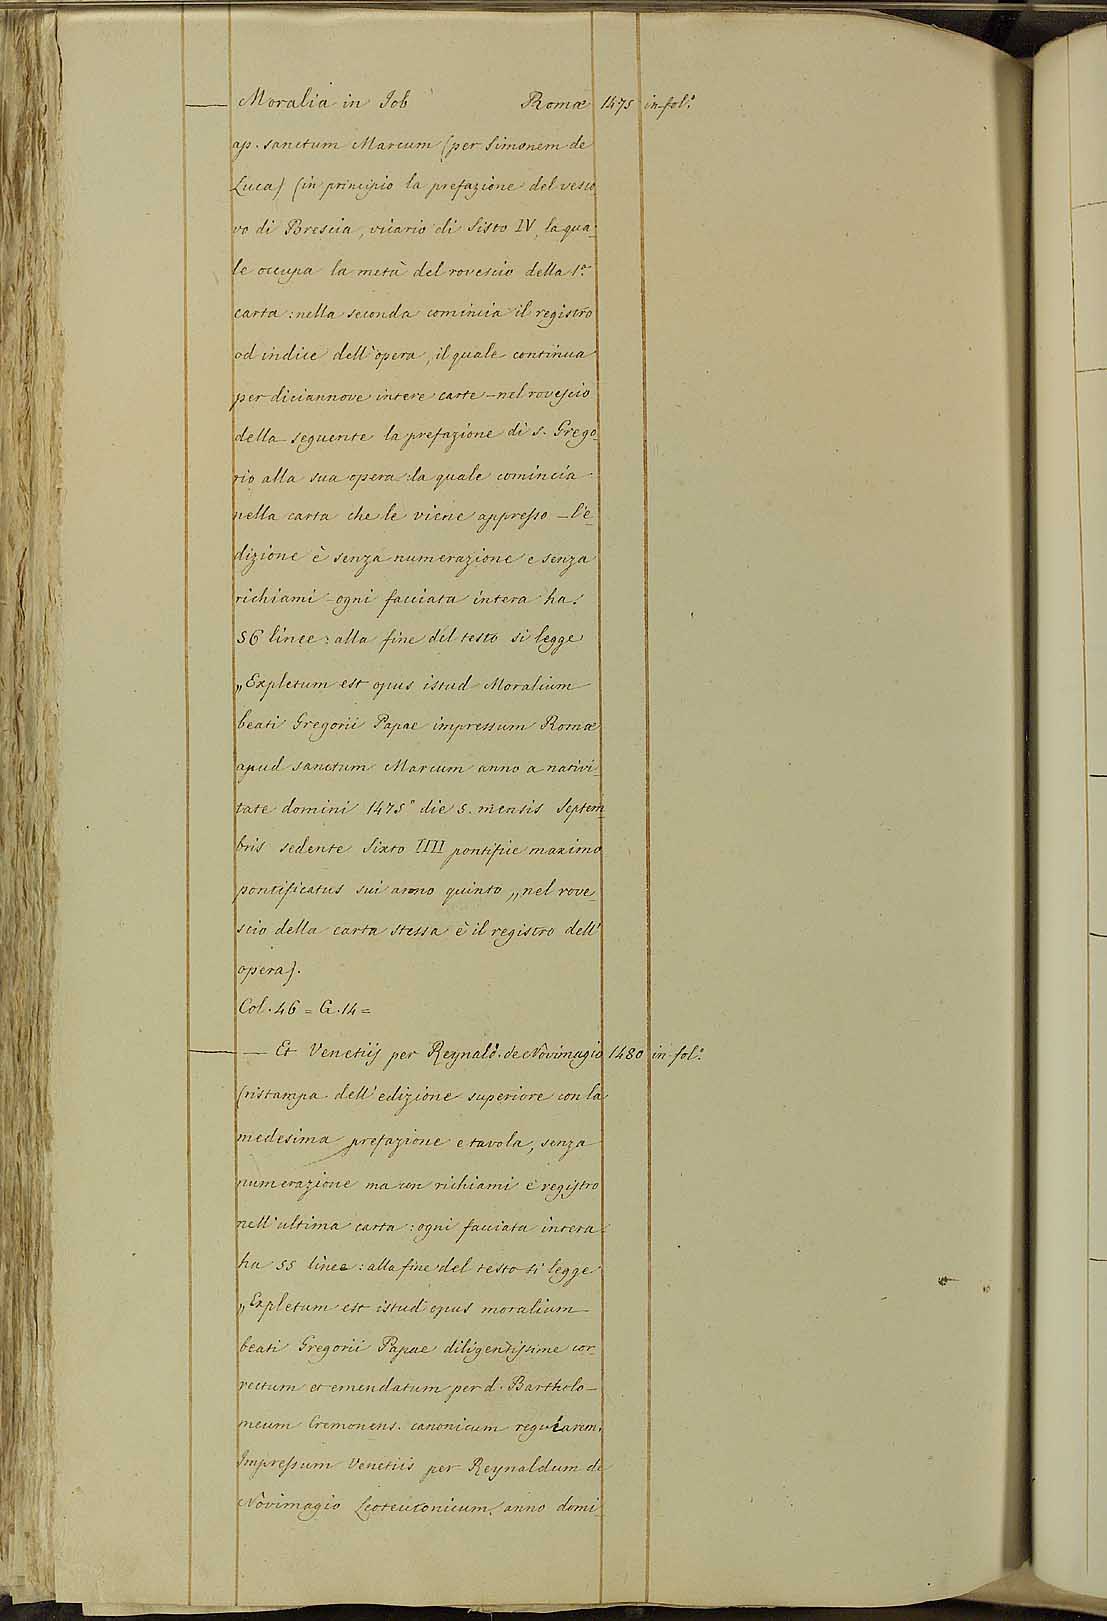 — Moralia in Job Romæ 1475 in-fol.º
ap. sanctum Marcum (per Simonem de
Luca) (in principio la prefazione del vesco
vo di Brescia, vicario di Sisto IV, la qua-
le occupa la metà del rovescio della 1.ª
carta: nella seconda comincia il registro
od indice dell'opera, il quale continua
per diciannove intere carte – nel rovescio
della seguente la prefazione di s. Grego-
rio alla sua opera: la quale comincia
nella carta che le viene appresso – l'e-
dizione è senza numerazione e senza
richiami – ogni facciata intera ha
56 linee: alla fine del testo si legge
„Expletum est opus istud Moralium
beati Gregorii Papae impressum Romæ
apud sanctum Marcum anno a nativi-
tate domini 1475º die 5. mensis Septem-
bris sedente Sixto IIII pontifice maximo
pontificatus sui anno quinto„ nel rove-
scio della carta stessa è il registro dell'
opera).
Col. 46 = G. 14 =
— — Et Venetiis per Reynald. de Novimagio 1480 in-fol.º
(ristampa dell'edizione superiore con la
medesima prefazione e tavola, senza
numerazione ma con richiami e registro
nell'ultima carta: ogni facciata intera
ha 55 linee: alla fine del testo si legge
„Expletum est istud opus moralium
beati Gregorii Papae diligentissime cor-
rectum et emendatum per d. Bartholo-
meum Cremonens. canonicum regularem.
Impressum Venetiis per Reynaldum de
Novimagio Leoteutonicum, anno domi-